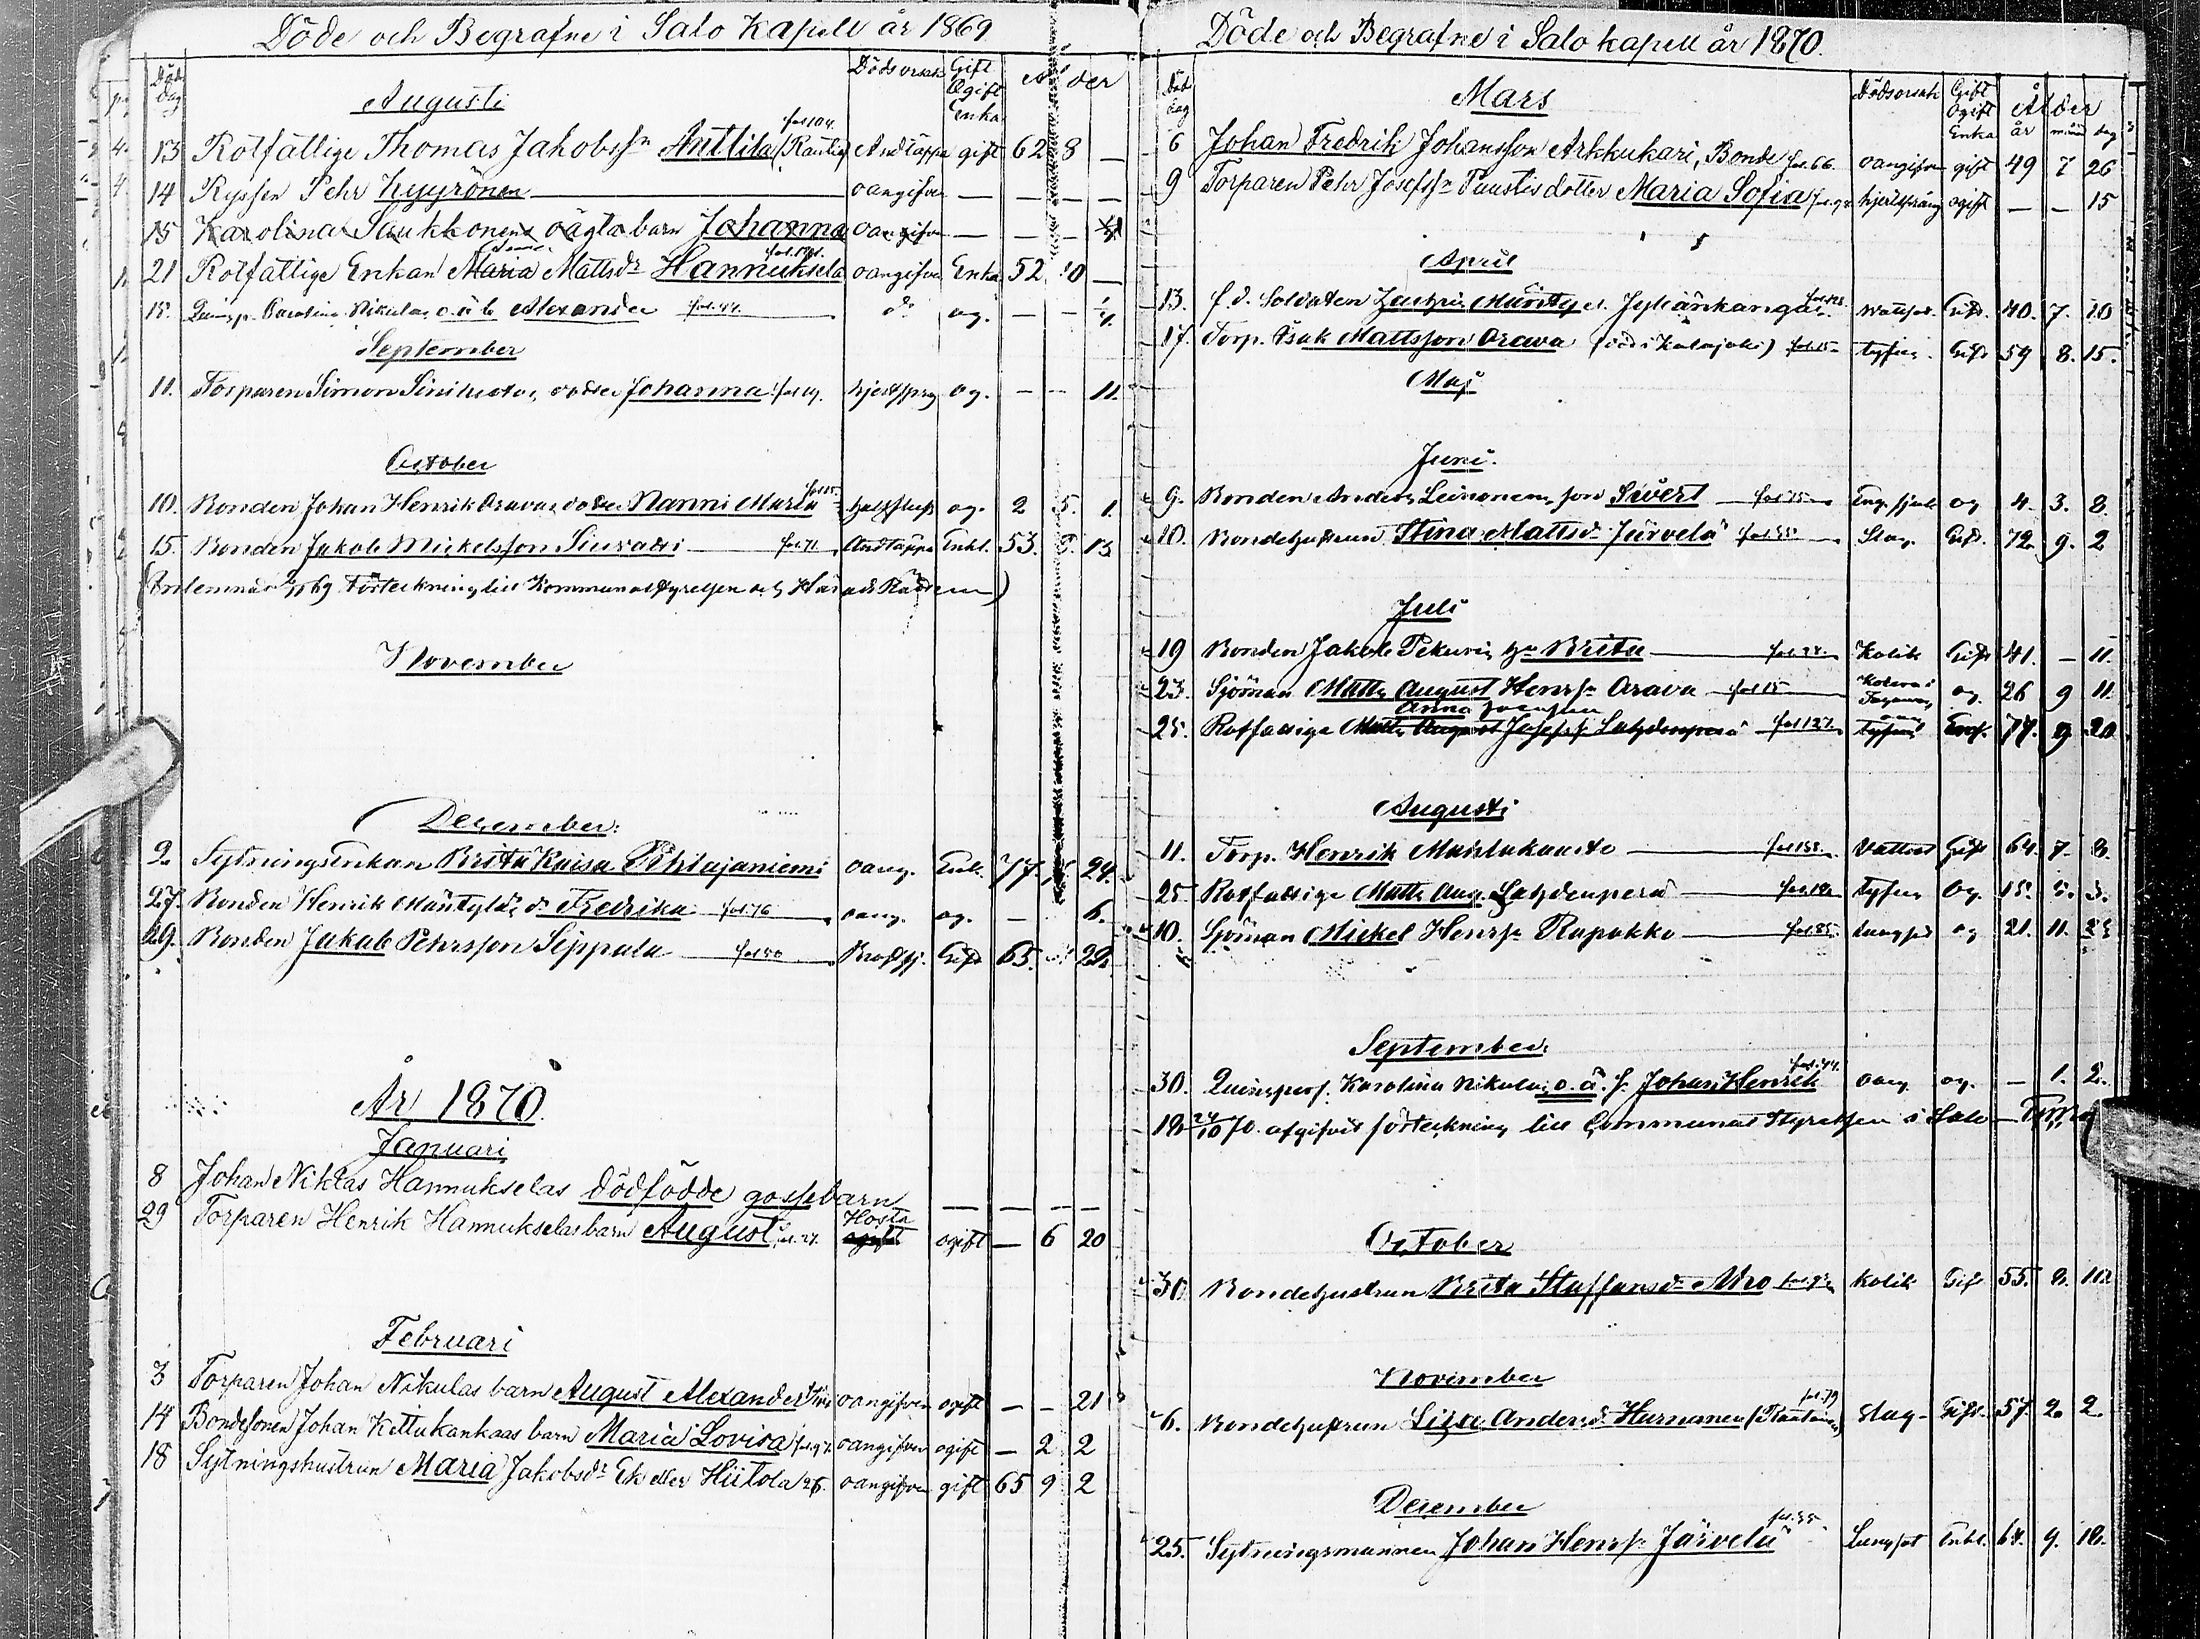 Döde och Begrafne i Salo Kapell år 1869
Död dag
Dödsorsak Gift Ogift Enka Ålder
Augusti
13 Rotfattige Thomas Jakobss:n Anttila (Rautio) fol 104. Andtäppa gift 62 8 —
14 Ryssen Pehr Kyyrönen oangifven — — — —
15 Karolina Saukkonens oägta barn Johanna oangifven — — —
21 Rotfattige Enkan Maria Mattsdr Hannuksela oangifven Enka 52 10 —
18. Qvinsp. Carolina Nikulas o.ä. b. Alexander fol. 44. do og. — —
September
11. Torparen Simon dotter Johanna hjertspng og. — — 11.
October
10. Bonden Johan Henrik Oravas dotter Nanni Maria fol 15. og. 2 5. 1.
15. Bonden Jakob Mickelsson fol. 71 Andtäppa Enkl. 53. 13
69 Förteckning till Kommunalstyrelsen och
November
December.
2. Sytningsenkan Brita Kaisa Pihlajaniemi oang. Enk. 77. 24.
27. Bonden Henrik Mäntyläs dr Fredrika fol. 76 oang. og. — 6.
29. Bonden Jakob Pehrsson Seppala fol 50 Gift 65. 22.
År 1870.
Januari
8 Johan Niklas Hannukselas dödfödde gossebarn — — — —
29 Torparen Henrik Hannukselas barn August fol. 27. Hosta ogift — 6 20
Februari
3 Torparen Johan Nikulas barn August Alexander oangifven ogift — — 21
14 Bondesonen Johan Kittukankaas barn Maria Lovisa oangifven ogift — 2 2
18 Sytningshustrun Maria Jakobsdr Ek eller Hiitola 26. oangifven gift 65 9 2
Döde och Begrafne i Salo kapell år 1870.
Död dag
Dödsorsak Gift Ogift Enka Ålder år mån dag
Mars
6 Johan Fredrik Johansson Arkkukari, Bonde fol. 66. oangifven gift 49 7 26
9 Torparen Pehr Josefss:n Paustis dotter Maria Sofia hjertsprång ogift — — 15
April
13. f.d. Soldaten Mäntyl. Jylhänkangas Wattsot. Gift. 40. 7. 10
17. Torp. Isak Mattsson Orava (död i Kalajoki) fol 15 tyfus Gift 59 8. 15.
Maj
Juni.
9. Bonden Anders Leinonens son Sivert fol 75 Eng. sjuk og 4. 3. 8.
10. Bondehustrun Stina Mattsdr Järvelä fol 55 Slag. Gift. 72. 9. 2
Juli
19 Bonden Jakob Pekuris hu Brita Kolik Gift 41. — 11.
23. Sjöman Matts August Henrss:n Orava fol 15 og. 26 9 11
25. Rotfattiga Matts August Josefss:n Lahdenperä fol 127. tyfus 77. 9 20
Anna Josefsson
Augusti
11. Torp. Henrik fol 158. Vattsot Gift 64. 7. 8.
25 Rotfattige Matts Aug. Lahdenperä tyfus Og. 15. 5. 3.
10. Sjöman Mickel Henrss:n Rapakko fol 85. Lungsot og 21. 11.
September.
30. Qvinspers. Karolina Nikulas o. ä. s. Johan Henrik fol. 44. oang og. — 1. 2.
24/10 70. afgifvit förteckning till Communal Styrelsen i Salo —
October
30. Bondehustrun Brita Staffansdr Aho Kolik Gift 55. 8.
November
6. Bondehustrun Liisa Andersdr Hurnanen (Rautanen) fol. 79 Slag Gift. 57 2. 2.
December
25. Sytningsmannen Johan Henrss:n Järvelä fol. 55 Lungsot Enkl. 64. 9. 18.